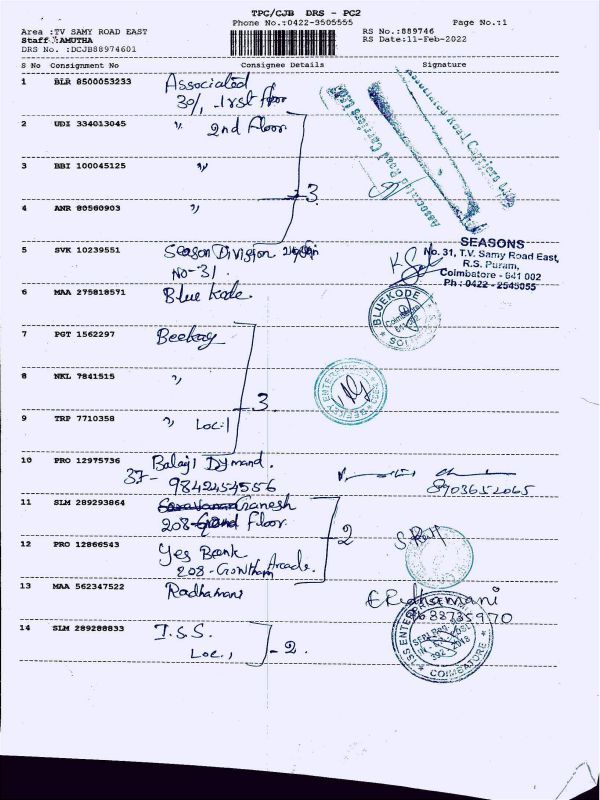 TPC/CJB DRS - PC2
Phone No.:0422-3505555
Page No.:1
Area :TV SAMY ROAD EAST
RS No.:889746
Staff :AMUTHA
RS Date:11-Feb-2022
DRS No. :DCJB88974601
S No Consignment No Consignee Details Signature
1 BLR 8500053233 Associated
30/, 1rst floor
2 UDI 334013045 " 2nd Floor
3 BBI 100045125 "
3
4 ANR 80560903 "
Associated Road Carriers Ltd
5 SVK 10239551 Season Division
No-31.
SEASONS
No. 31, T.V. Samy Road East,
R.S. Puram,
Coimbatore - 641 002
Ph : 0422 - 2545055
6 MAA 275818571 Blue Kode.
BLUEKODE
Coimbatore
7 PGT 1562297 Beekay
8 NKL 7841515 "
BEEKAY ENTERPRISES
3
9 TRP 7710358 " Loc:1
10 PRO 12975736 Balaji Dymand.
37- 9842454556
8903652065
11 SLM 289293864 Ganesh
208- Floor.
2
12 PRO 12866543 Yes Bank
208- Gowtham Arcade.
13 MAA 562347522 Radhamani
14 SLM 289288833 T.S.S.
Loc., - 2.
COIMBATORE